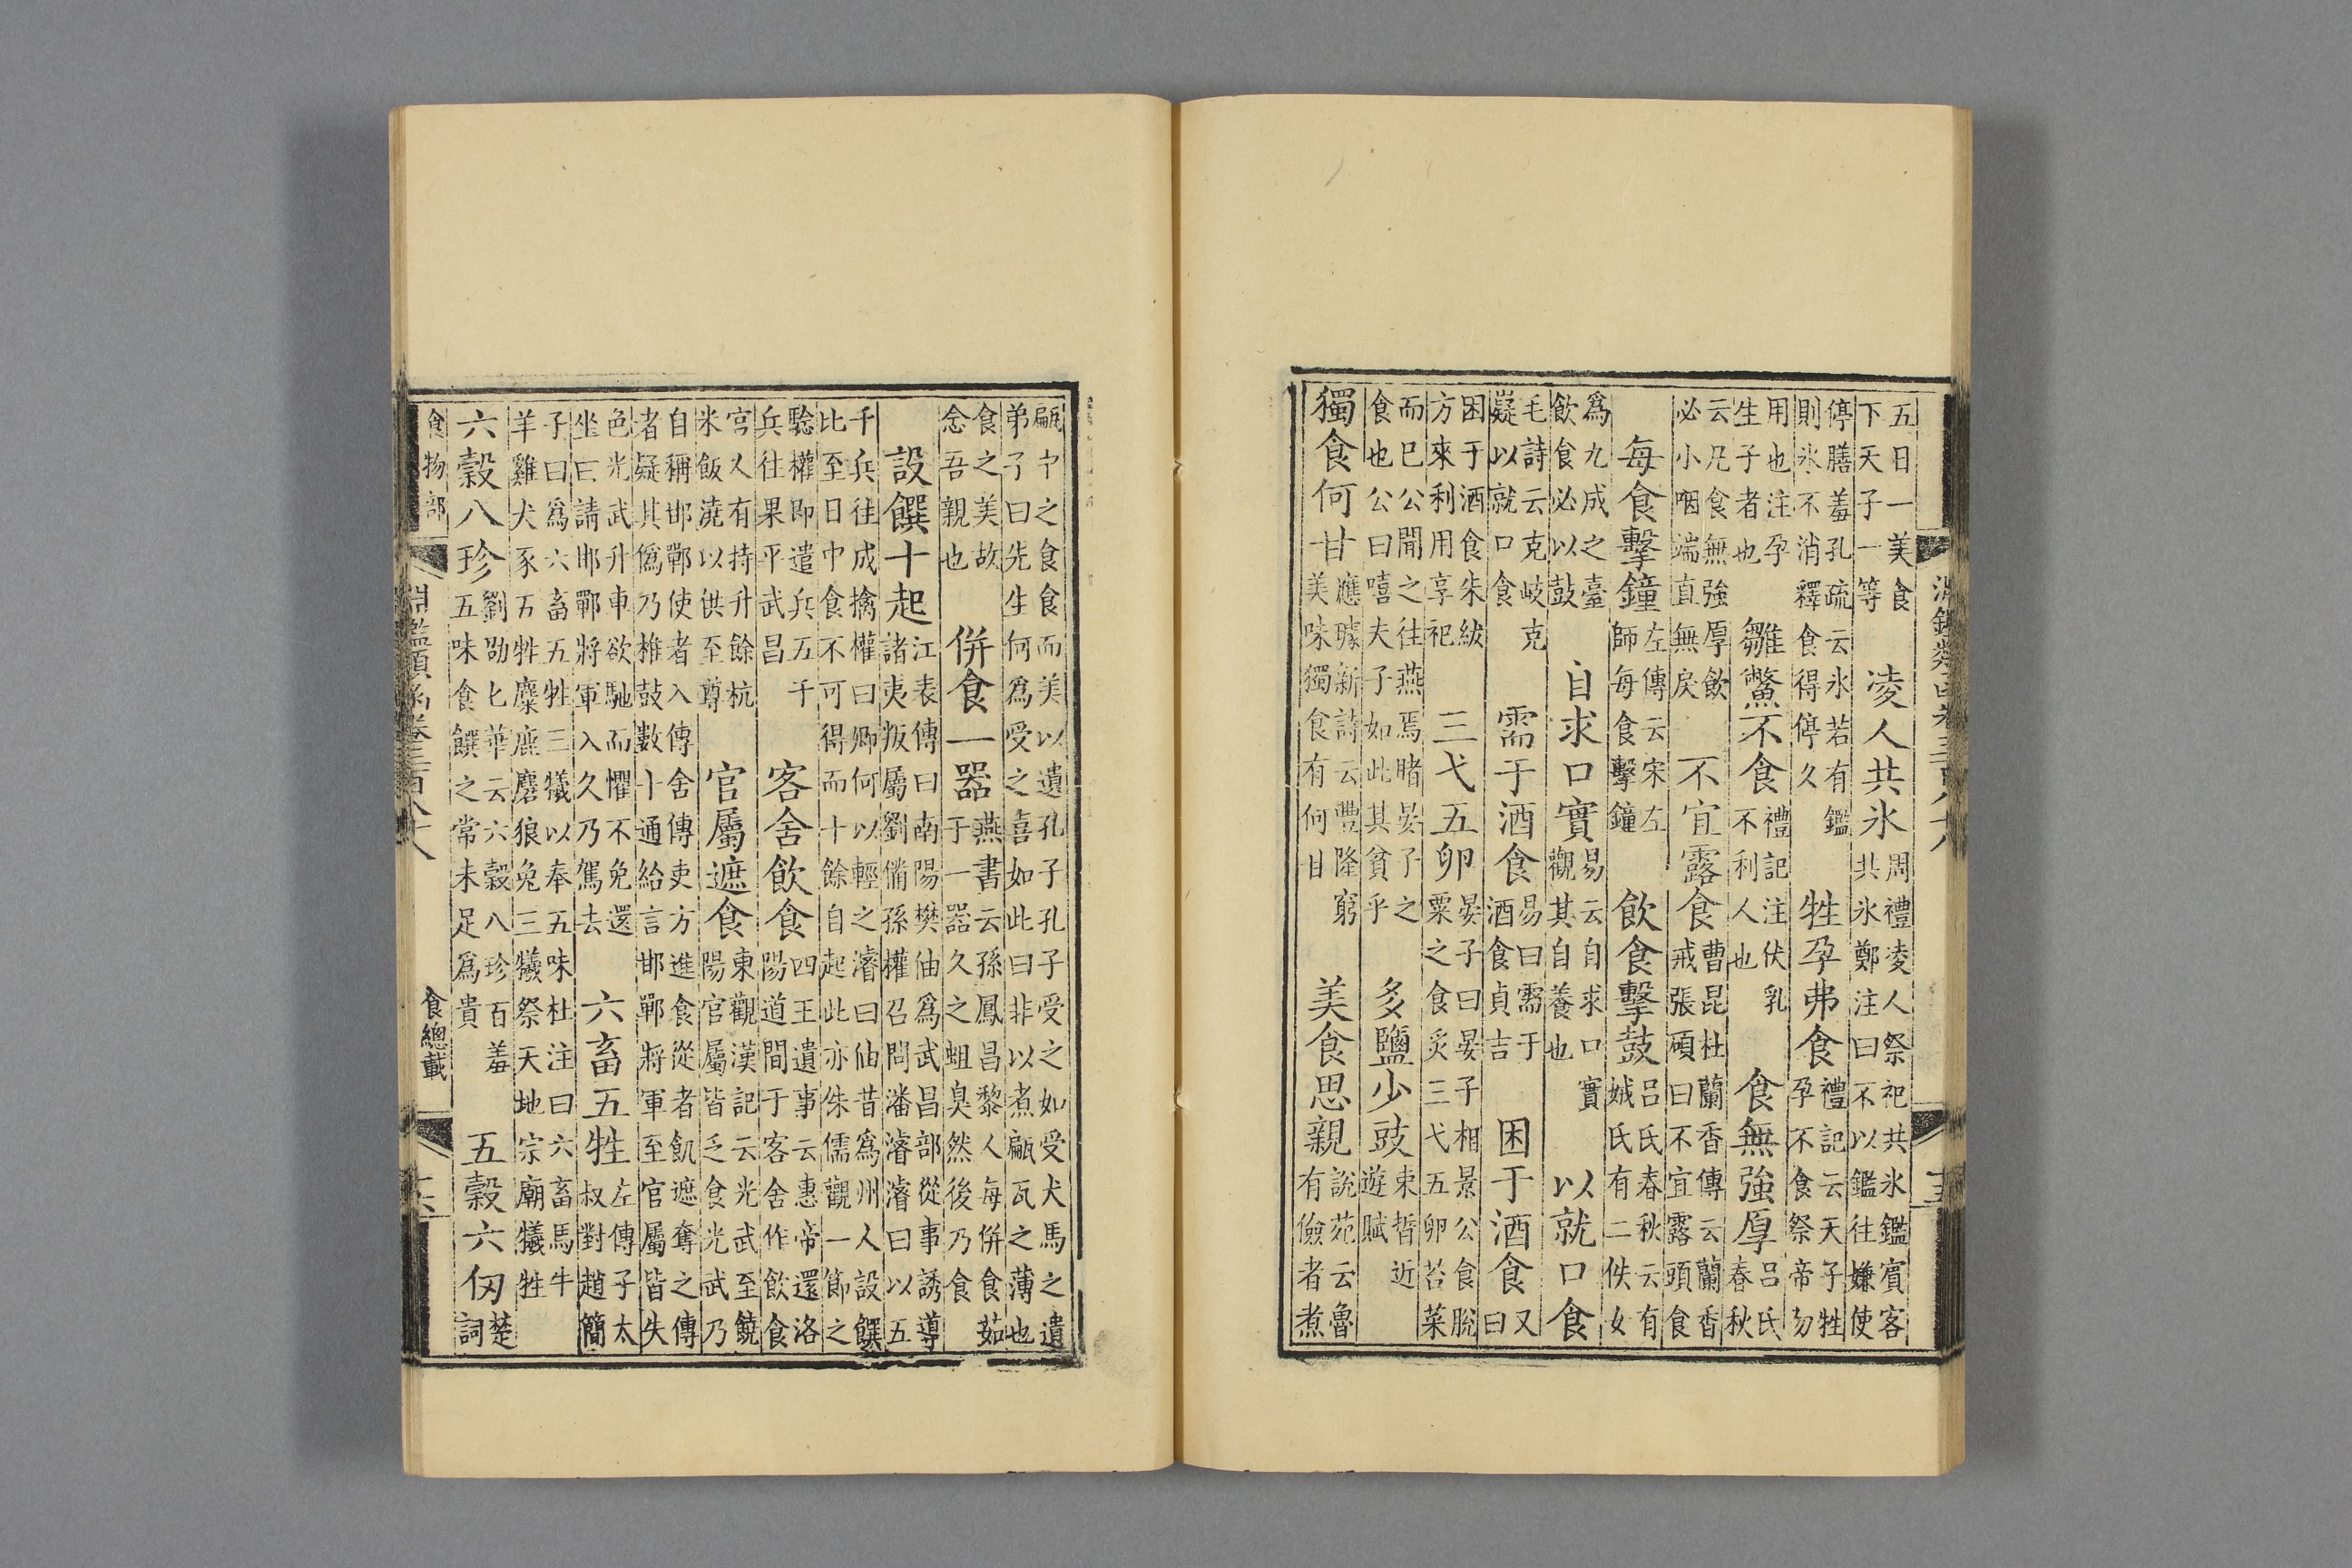 淵鑑類函卷三百八十八 十五
五日一美食下天子一等 凌人共氷 周禮凌人祭祀共氷鑑賓客共氷鄭注曰不以鑑往嫌使
停膳羞孔疏云氷若有鑑則氷不消釋食得停久 牲孕弗食 禮記云天子牲孕不食祭帝勿
用也注孕生子者也 雛鱉不食 禮記注伏乳不利人也 食無強厚 呂氏春秋
云凡食無強厚飲必小咽端直無戾 不宜露食 曹昆杜蘭香傳云蘭香戒張碩曰不宜露頭食
每食擊鐘 左傳云宋左師每食擊鐘 飲食擊鼓 呂氏春秋云有娀氏有二佚女
爲九成之臺飲食必以鼓 自求口實 易云自求口實觀其自養也 以就口食
毛詩云克岐克嶷以就口食 需于酒食 易曰需于酒食貞吉 困于酒食 又曰
困于酒食朱紱方來利用享祀 三弋五卯 晏子曰晏子相景公食脫粟之食炙三弋五卯苔菜
而已公聞之往燕焉睹晏子之食也公曰嘻夫子如此其貧乎 多鹽少豉 束晳近遊賦
獨食何甘 應璩新詩云豐隆窮美味獨食有何甘 美食思親 說苑云魯有儉者煮
甂中之食食而美以遺孔子孔子受之如受犬馬之遺弟子曰先生何爲受之喜如此曰非以煮甂瓦之薄也
食之美故念吾親也 併食一器 燕書云孫鳳昌黎人每併食茹于一器久之蛆臭然後乃食
設饌十起 江表傳曰南陽樊伷爲武昌部從事誘導諸夷叛屬劉備孫權召問潘濬濬曰以五
千兵往成擒權曰卿何以輕之濬曰伷昔爲州人設饌比至日中食不可得而十餘自起此亦侏儒觀一節之
驗權即遣兵五千兵往果平武昌 客舍飲食 四王遺事云惠帝還洛陽道間于客舍作飲食
宮人有持升餘杭米飯澆以供至尊 官屬遮食 東觀漢記云光武至饒陽官屬皆乏食光武乃
自稱邯鄲使者入傳舍傳吏方進食從者飢遮奪之傳者疑其僞乃椎鼓數十通給言邯鄲將軍至官屬皆失
色光武升車欲馳而懼不免還坐曰請邯鄲將軍入久乃駕去 六畜五牲 左傳子太叔對趙簡
子曰爲六畜五牲三犧以奉五味杜注曰六畜馬牛羊雞犬豕五牲麋鹿麏狼兔三犧祭天地宗廟犧牲
六穀八珍 劉劭七華云六穀八珍百羞五味食饌之常未足爲貴 五穀六仞 楚詞
食物部 淵鑑類函卷三百八十八 食總載 十六